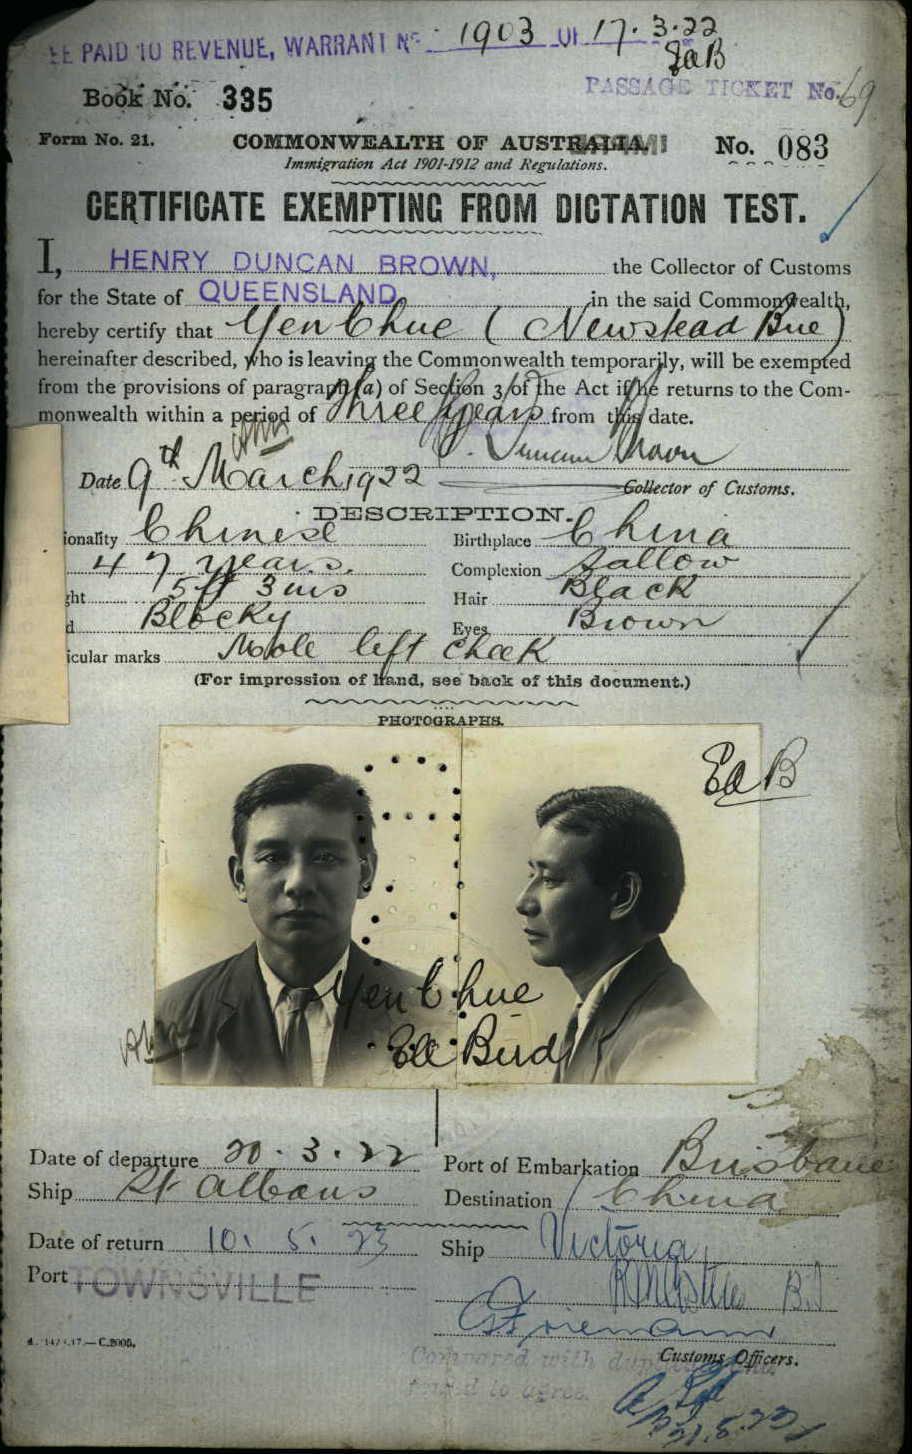 EE PAID TO REVENUE, WARRANT No 1903 OF 17.3.22
EaB
PASSAGE TICKET No. 69
Book No. 335
Form No. 21. COMMONWEALTH OF AUSTRALIA. No. 083
Immigration Act 1901-1912 and Regulations.
CERTIFICATE EXEMPTING FROM DICTATION TEST.
I, HENRY DUNCAN BROWN, the Collector of Customs
for the State of QUEENSLAND in the said Commonwealth,
hereby certify that Yen Chue (Newstead Bue)
hereinafter described, who is leaving the Commonwealth temporarily, will be exempted
from the provisions of paragraph (a) of Section 3 of the Act if he returns to the Com-
monwealth within a period of Three years from this date.
H. Duncan Brown
Date 9th March 1922 Collector of Customs.
DESCRIPTION.
ionality Chinese Birthplace China
47 years. Complexion Sallow
ght 5ft 3ins Hair Black
d Blocky Eyes Brown
icular marks Mole left cheek
(For impression of hand, see back of this document.)
PHOTOGRAPHS.
EaB
Yen Chue
Ed Bird
Date of departure 20.3.22 Port of Embarkation Brisbane
Ship St Albans Destination China
Date of return 10.5.23 Ship Victoria
Port TOWNSVILLE
Customs Officers.
Compared with duplicate and
found to agree.
21.5.23